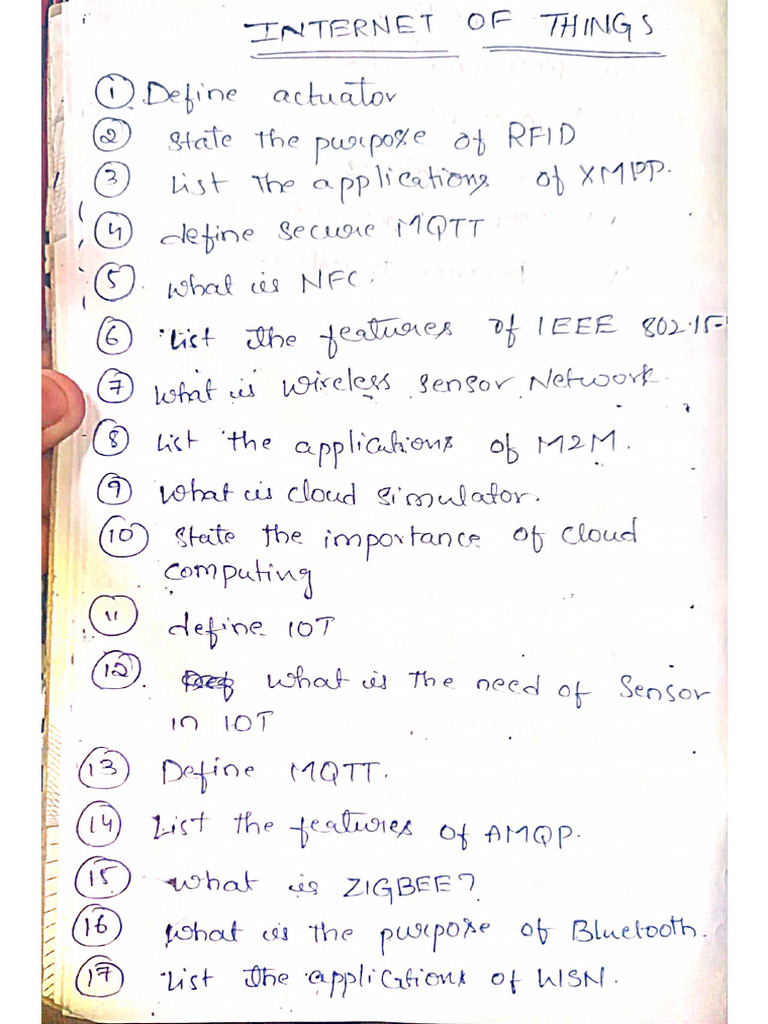 INTERNET OF THINGS
1 Define actuator
2 State the purpose of RFID
3 List the applications of XMPP.
4 define secure MQTT
5 what is NFC.
6 List the features of IEEE 802.15
7 What is wireless sensor Network.
8 List the applications of M2M.
9 What is cloud simulator.
10 State the importance of cloud
computing
11 define IOT
12. what is the need of Sensor
in IOT
13 Define MQTT.
14 List the features of AMQP.
15 What is ZIGBEE?
16 What is the purpose of Bluetooth.
17 List the applications of WSN.